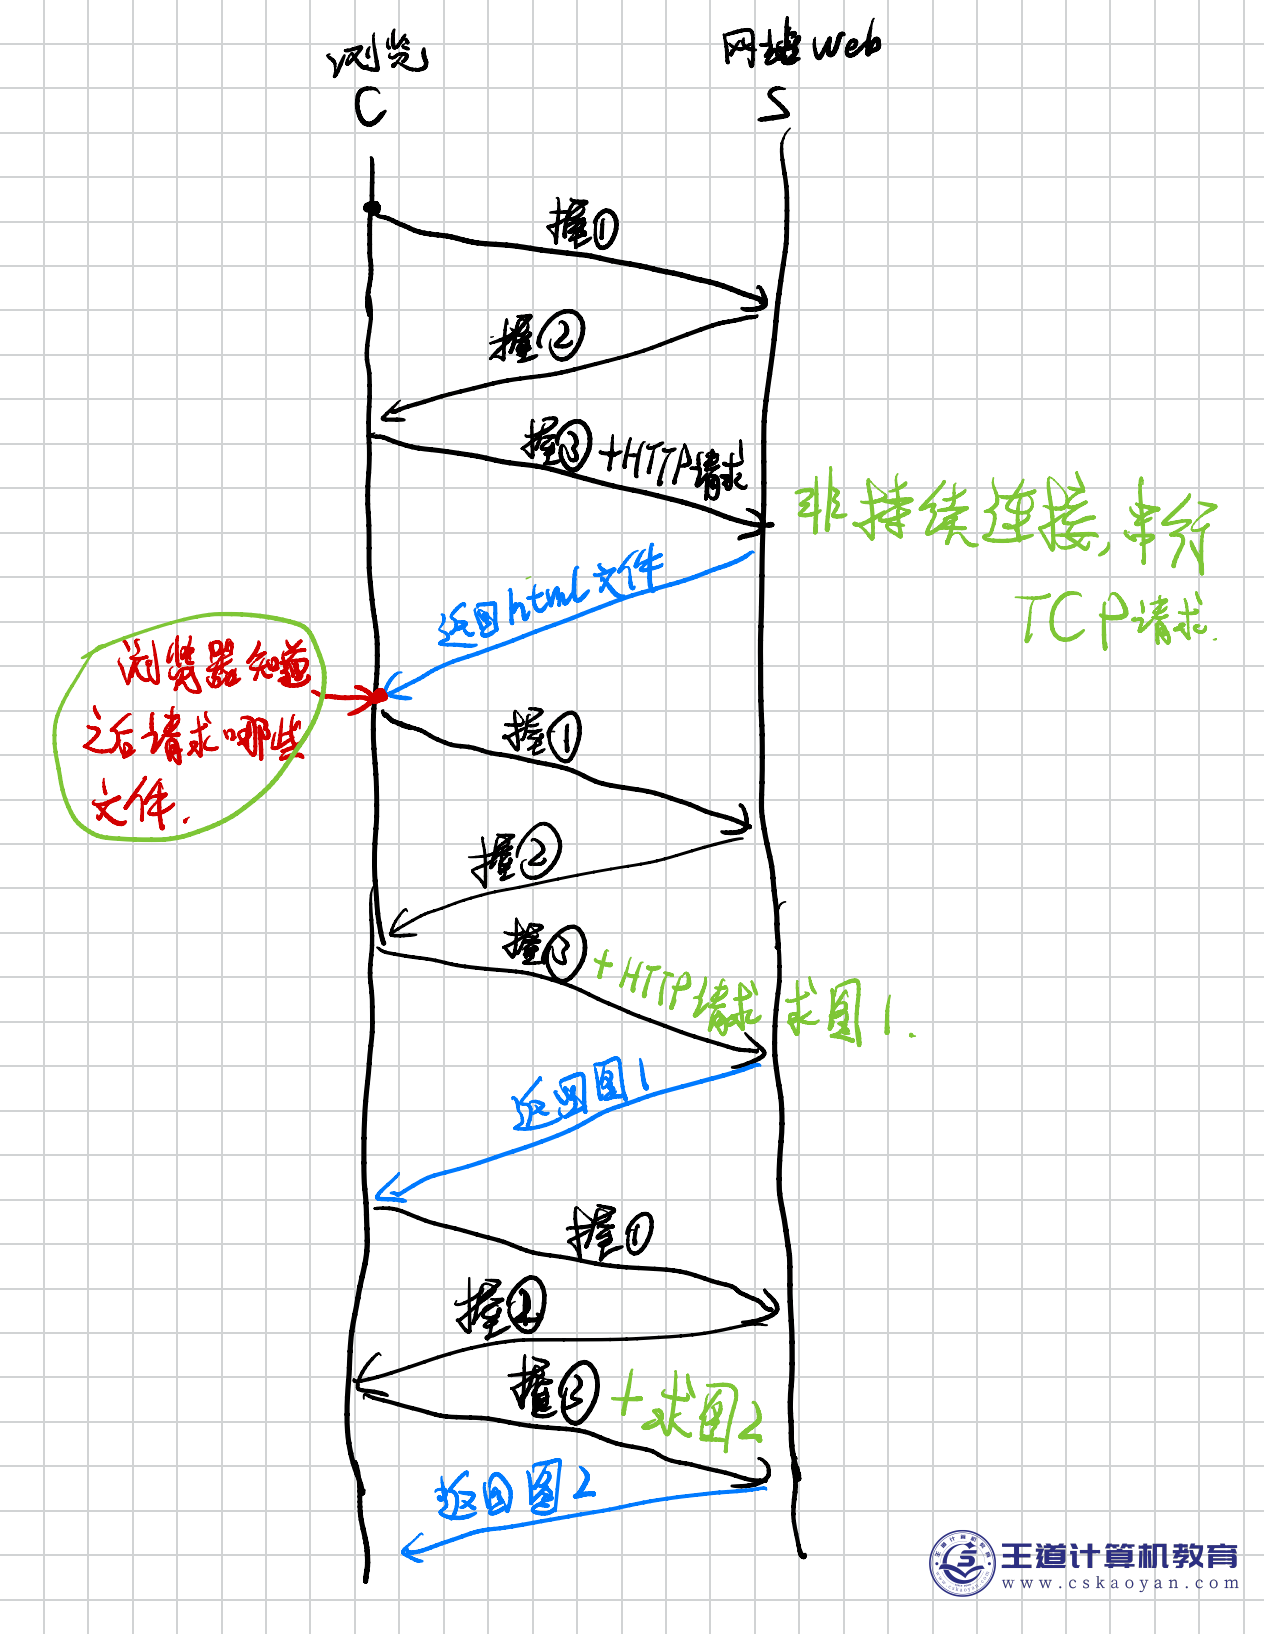 浏览
网站Web
C
S
握①
握②
握③+HTTP请求
非持续连接,串行
TCP请求.
返回html文件
浏览器知道
之后请求哪些
文件.
握①
握②
握③+HTTP请求 求图1.
返回图1
握①
握②
握③+求图2
返回图2
王道计算机教育
www.cskaoyan.com